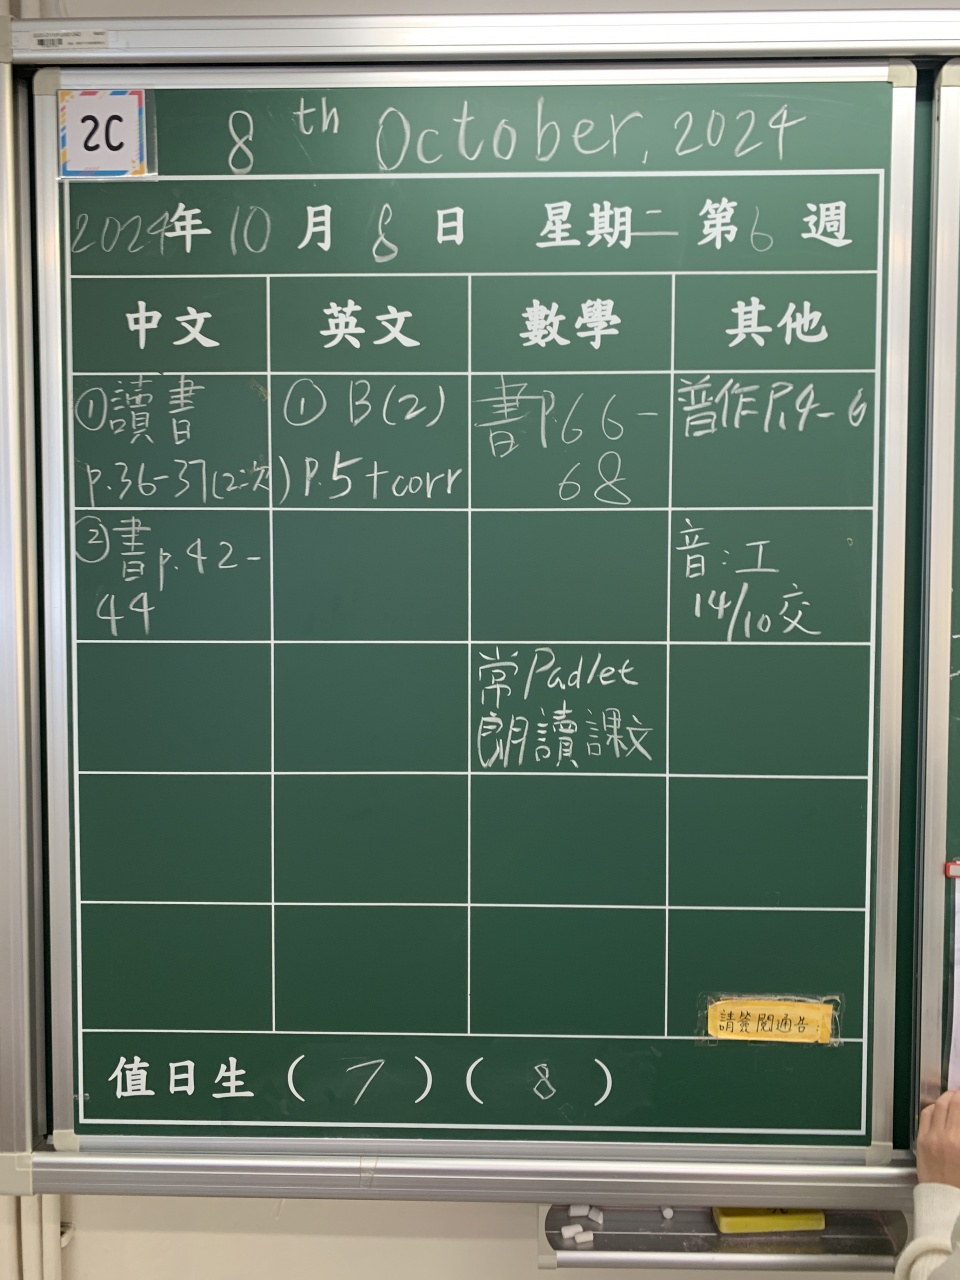 2C
8th October, 2024
2024年10月8日 星期二 第6週
中文 英文 數學 其他
①讀書
p.36-37(2次)
① B(2)
P.5+corr
書P.66-
68
普作P.4-6
②書p.42-
44
音:工
14/10交
常Padlet
朗讀課文
請簽閱通告:
值日生(7)(8)